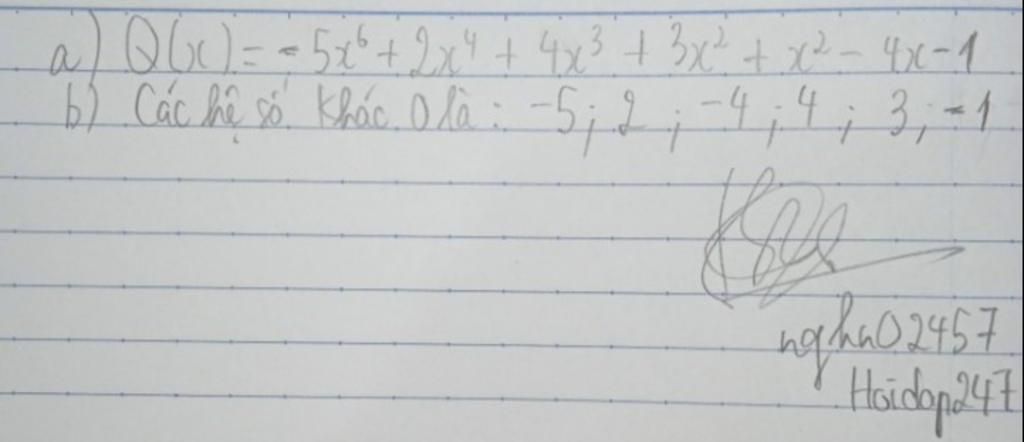 a) Q(x) = -5x⁶ + 2x⁴ + 4x³ + 3x² + x² - 4x - 1
b) Các hệ số khác 0 là: -5; 2; -4; 4; 3; -1
nghn02457
Hoidap247